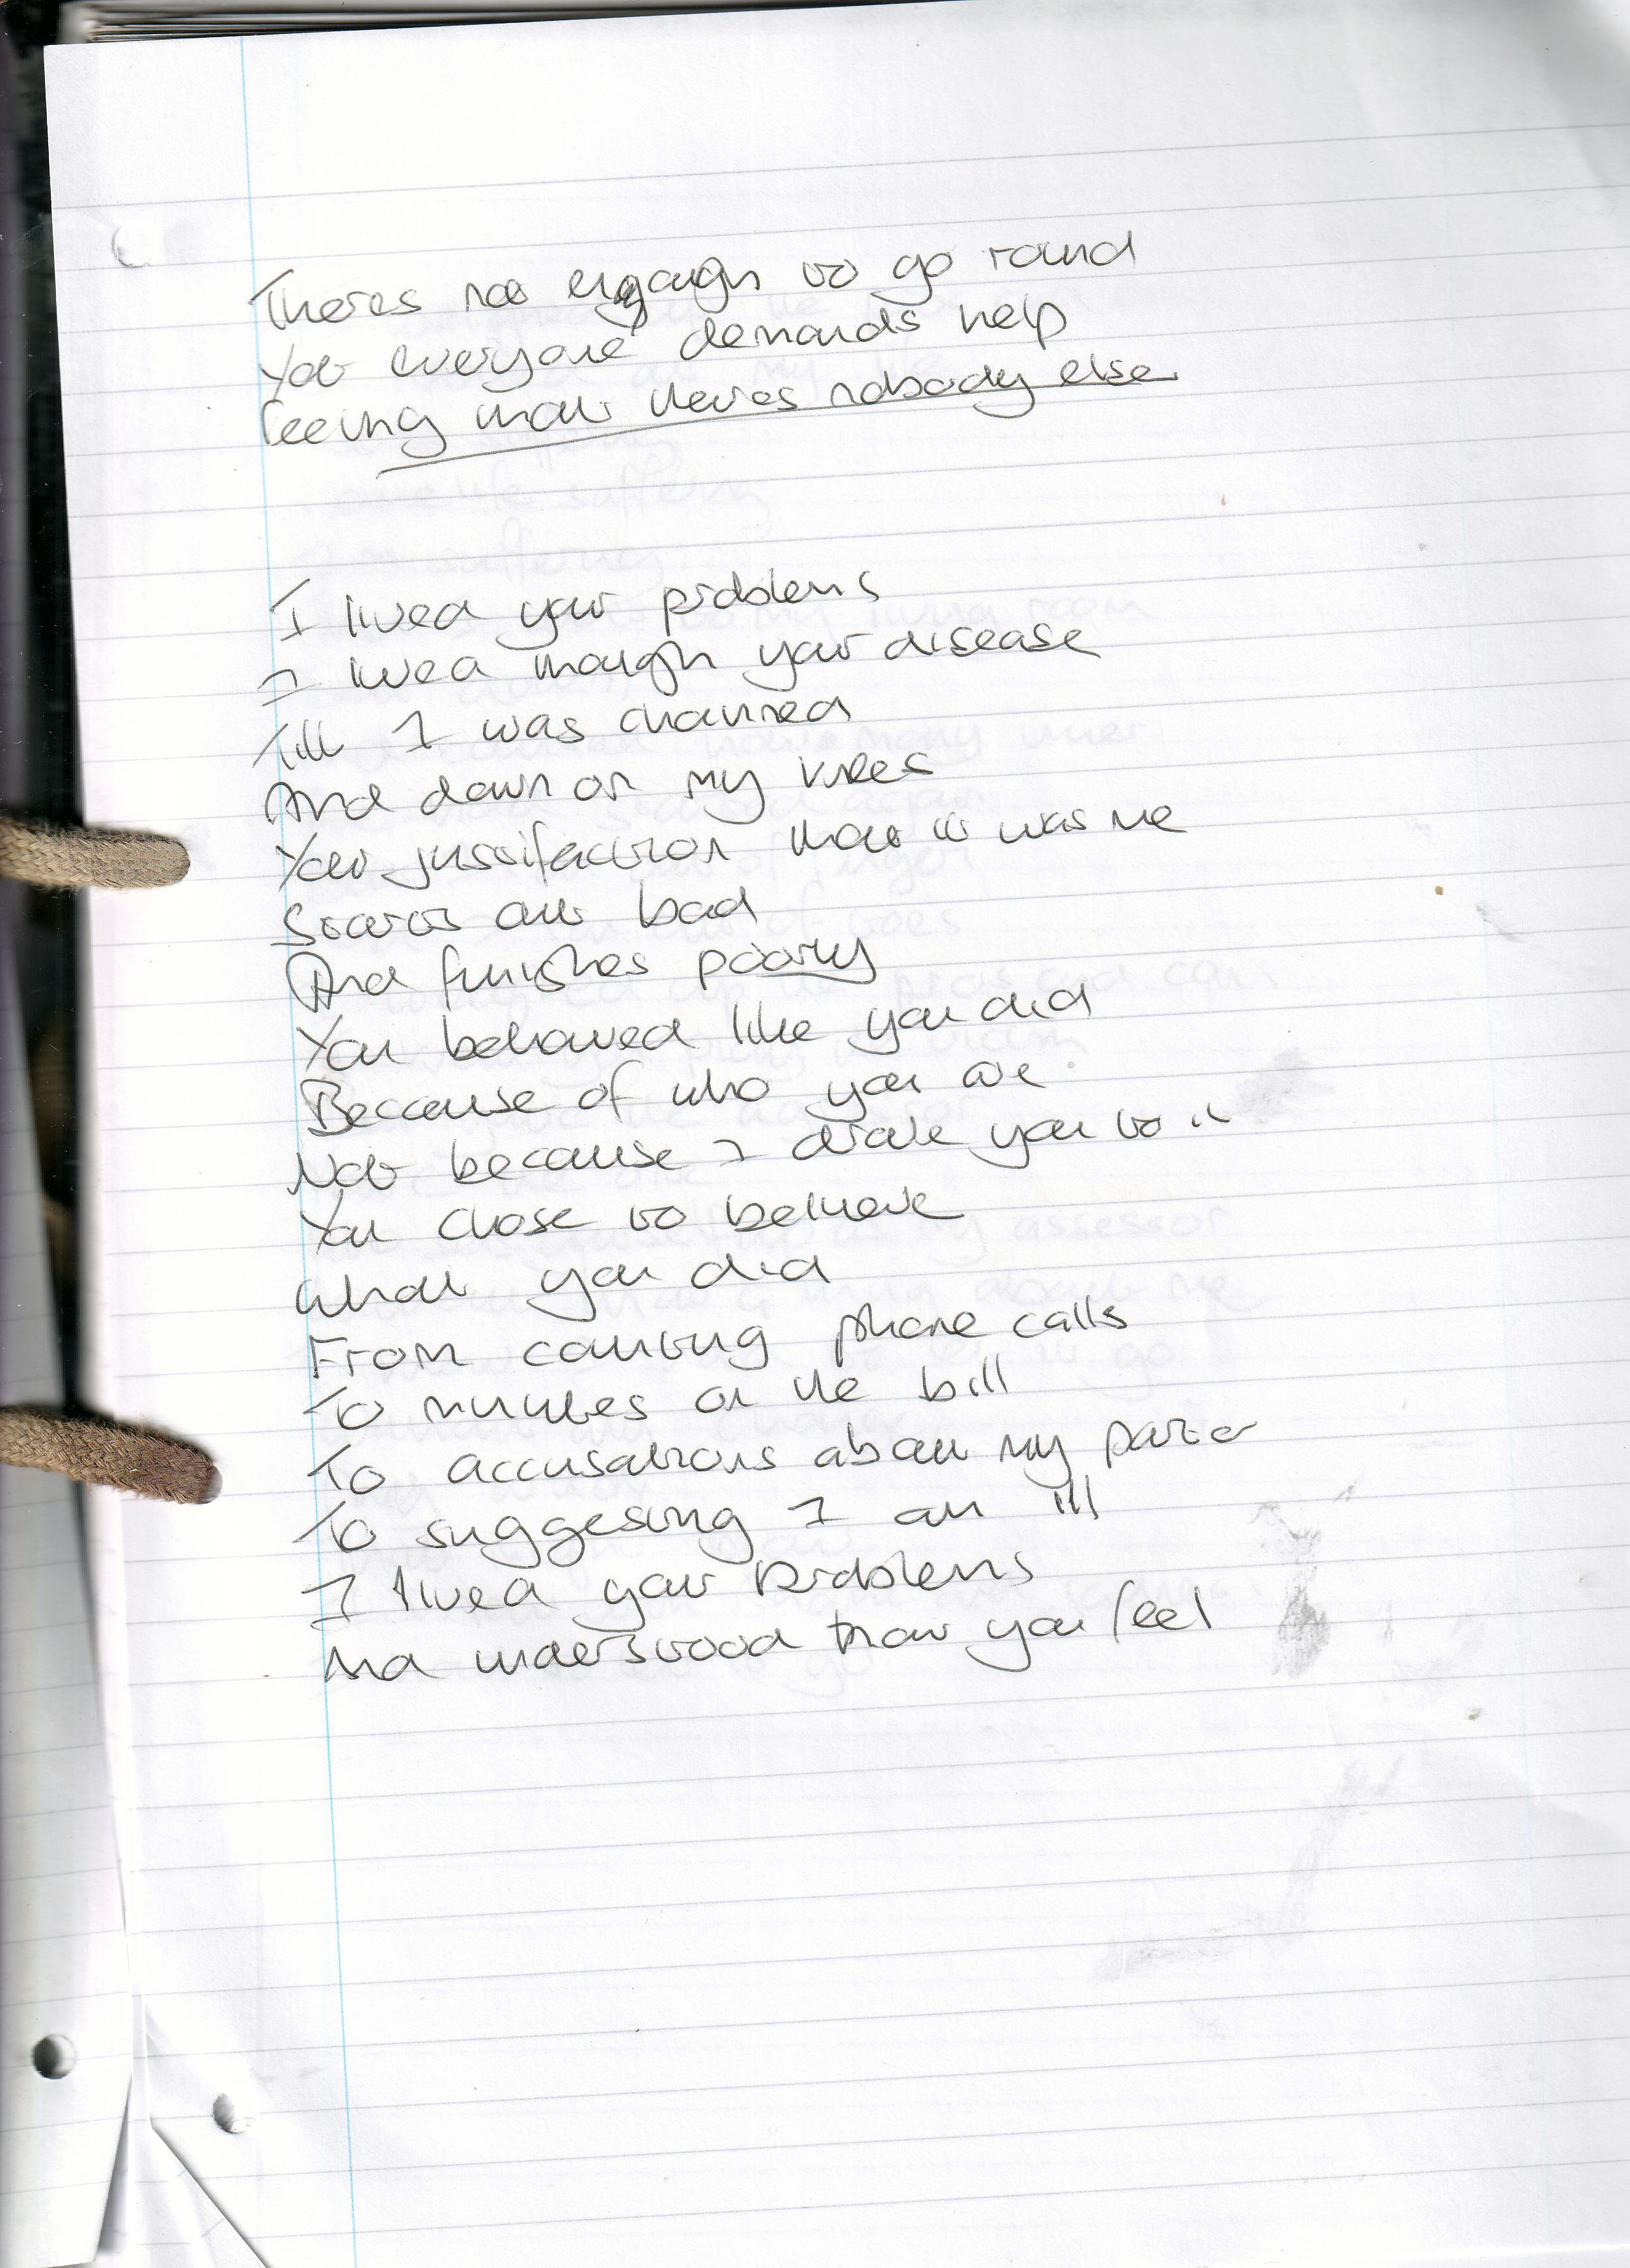 Theres not enough to go round
Yet everyone demands help
Feeling that theres nobody else
I lived your problems
I lived though your disease
Till I was chained
And down on my knees
Your jusstifaction that it was me
Starts out bad
And finishes poorly
You behaved like you did
Because of who you are
Not because I drove you to it
You chose to believe
What you did
From counting phone calls
To minutes on the bill
To accusations about my
To suggesting I am ill
I lived your problems
And understood how you feel